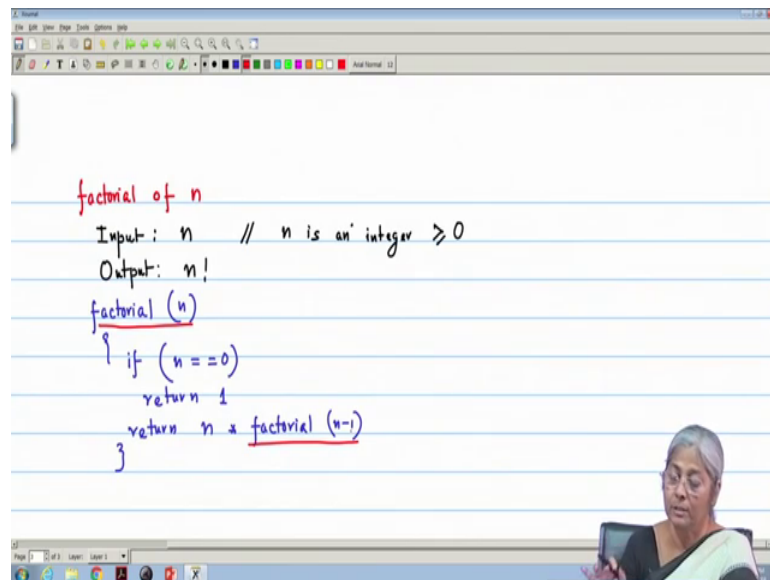 Xournal
File Edit View Page Tools Options Help
Arial Normal 12
factorial of n
Input: n // n is an integer ≥ 0
Output: n!
factorial (n)
{ if (n == 0)
return 1
return n * factorial (n-1)
}
Page 3 of 3 Layer: Layer 1